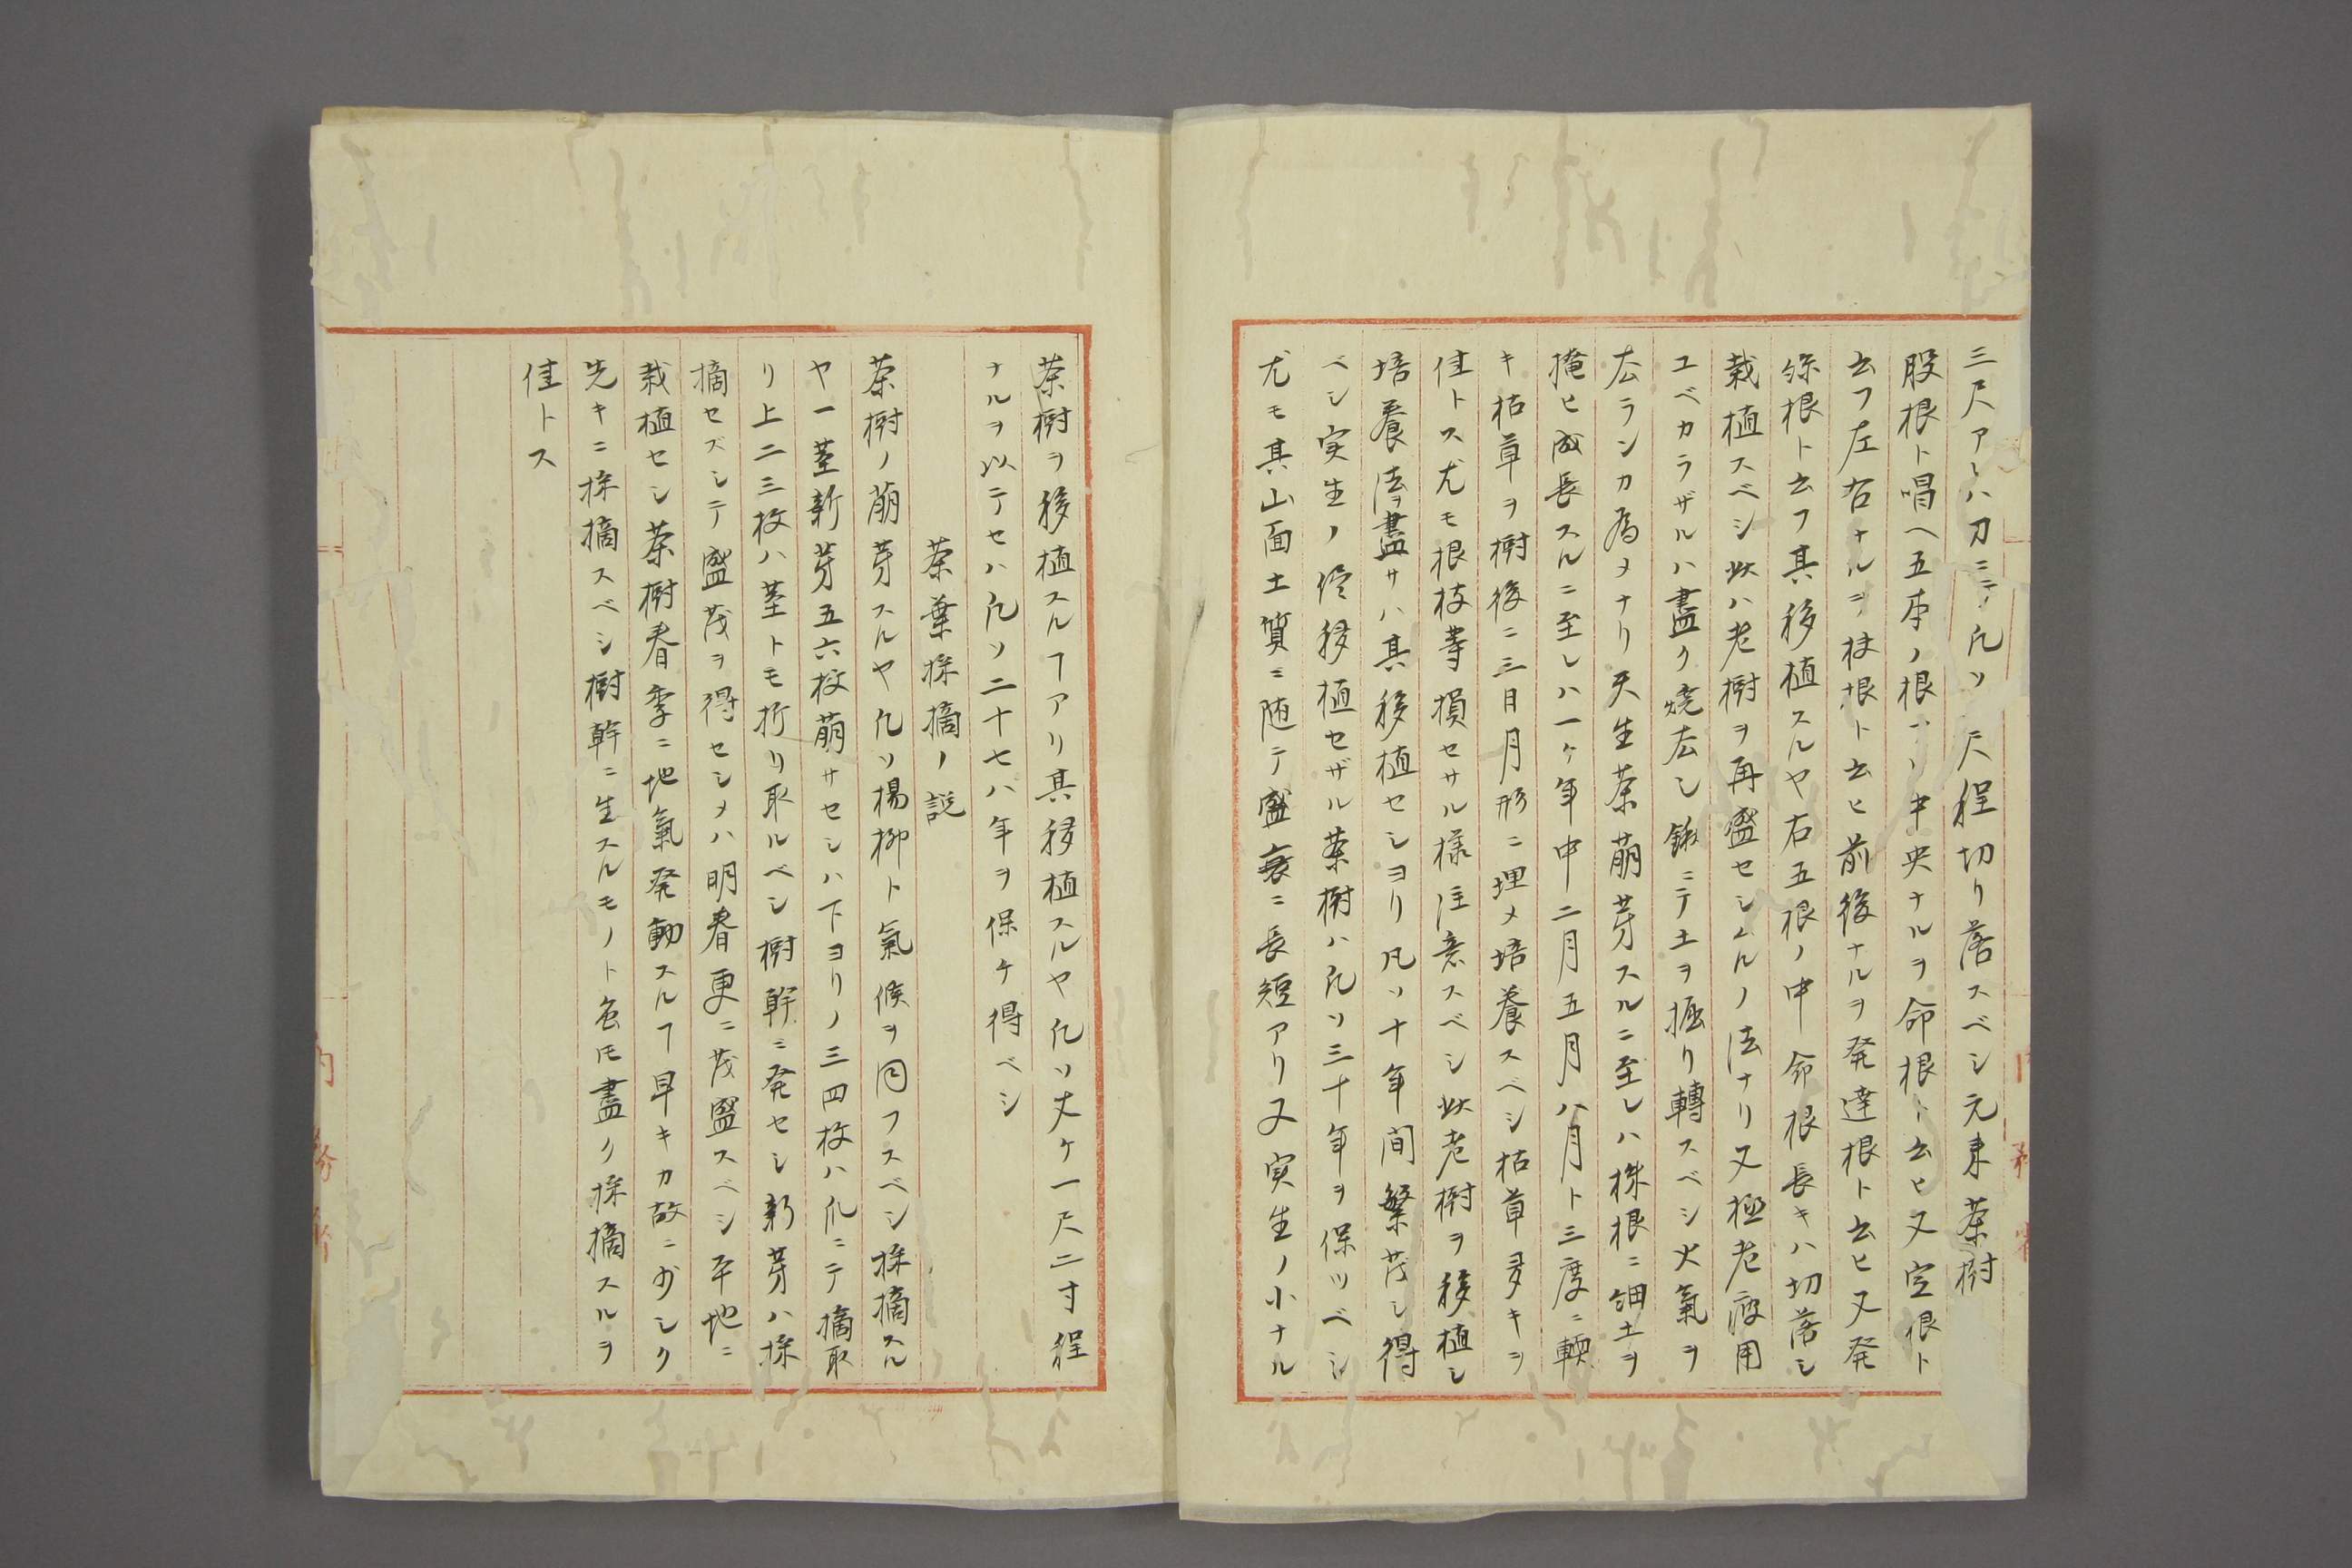 三尺アレハ刀ニテ凡ソ 尺程切リ落スベシ元来茶樹
股根ト唱ヘ五本ノ根アリ中央ナルヲ命根ト云ヒ又定根ト
云フ左右ナルヲ枝根ト云ヒ前後ナルヲ発達根ト云ヒ又発
孫根ト云フ其移植スルヤ右五根ノ中命根長キハ切落シ
栽植スベシ此ハ老樹ヲ再盛セシムルノ法ナリ又極老廃用
ユベカラザルハ盡ク焼去シ鍬ニテ土ヲ掘リ轉スベシ火氣ヲ
去ランカ為メナリ天生茶萠芽スルニ至レハ株根ニ細土ヲ
掩ヒ成長スルニ至レハ一ヶ年中二月五月八月ト三度ニ輭
キ枯草ヲ樹後ニ三日月形ニ埋メ培養スベシ枯草多キヲ
佳トス尤モ根枝等損セサル様注意スベシ此老樹ヲ移植シ
培養法ヲ盡サハ其移植セシヨリ凡ソ十年間繁茂シ得
ベシ実生ノ侭移植セザル茶樹ハ凡ソ三十年ヲ保ツベシ
尤モ其山面土質ニ随テ盛衰ニ長短アリ又実生ノ小ナル
茶樹ヲ移植スルヿアリ其移植スルヤ凡ソ丈ケ一尺二寸程
ナルヲ以テセハ凡ソ二十七八年ヲ保ケ得ベシ
茶葉採摘ノ説
茶樹ノ萠芽スルヤ凡ソ楊柳ト氣候ヲ同フスベシ採摘スル
ヤ一茎新芽五六枚萠サセシハ下ヨリノ三四枚ハ爪ニテ摘取
リ上二三枚ハ茎トモ折リ取ルベシ樹幹ニ発セシ新芽ハ採
摘セズシテ盛茂ヲ得セシメハ明春更ニ茂盛スベシ平地ニ
栽植セシ茶樹春季ニ地氣発動スルヿ早キカ故ニ少シク
先キニ採摘スベシ樹幹ニ生スルモノト雖𪜈盡ク採摘スルヲ
佳トス